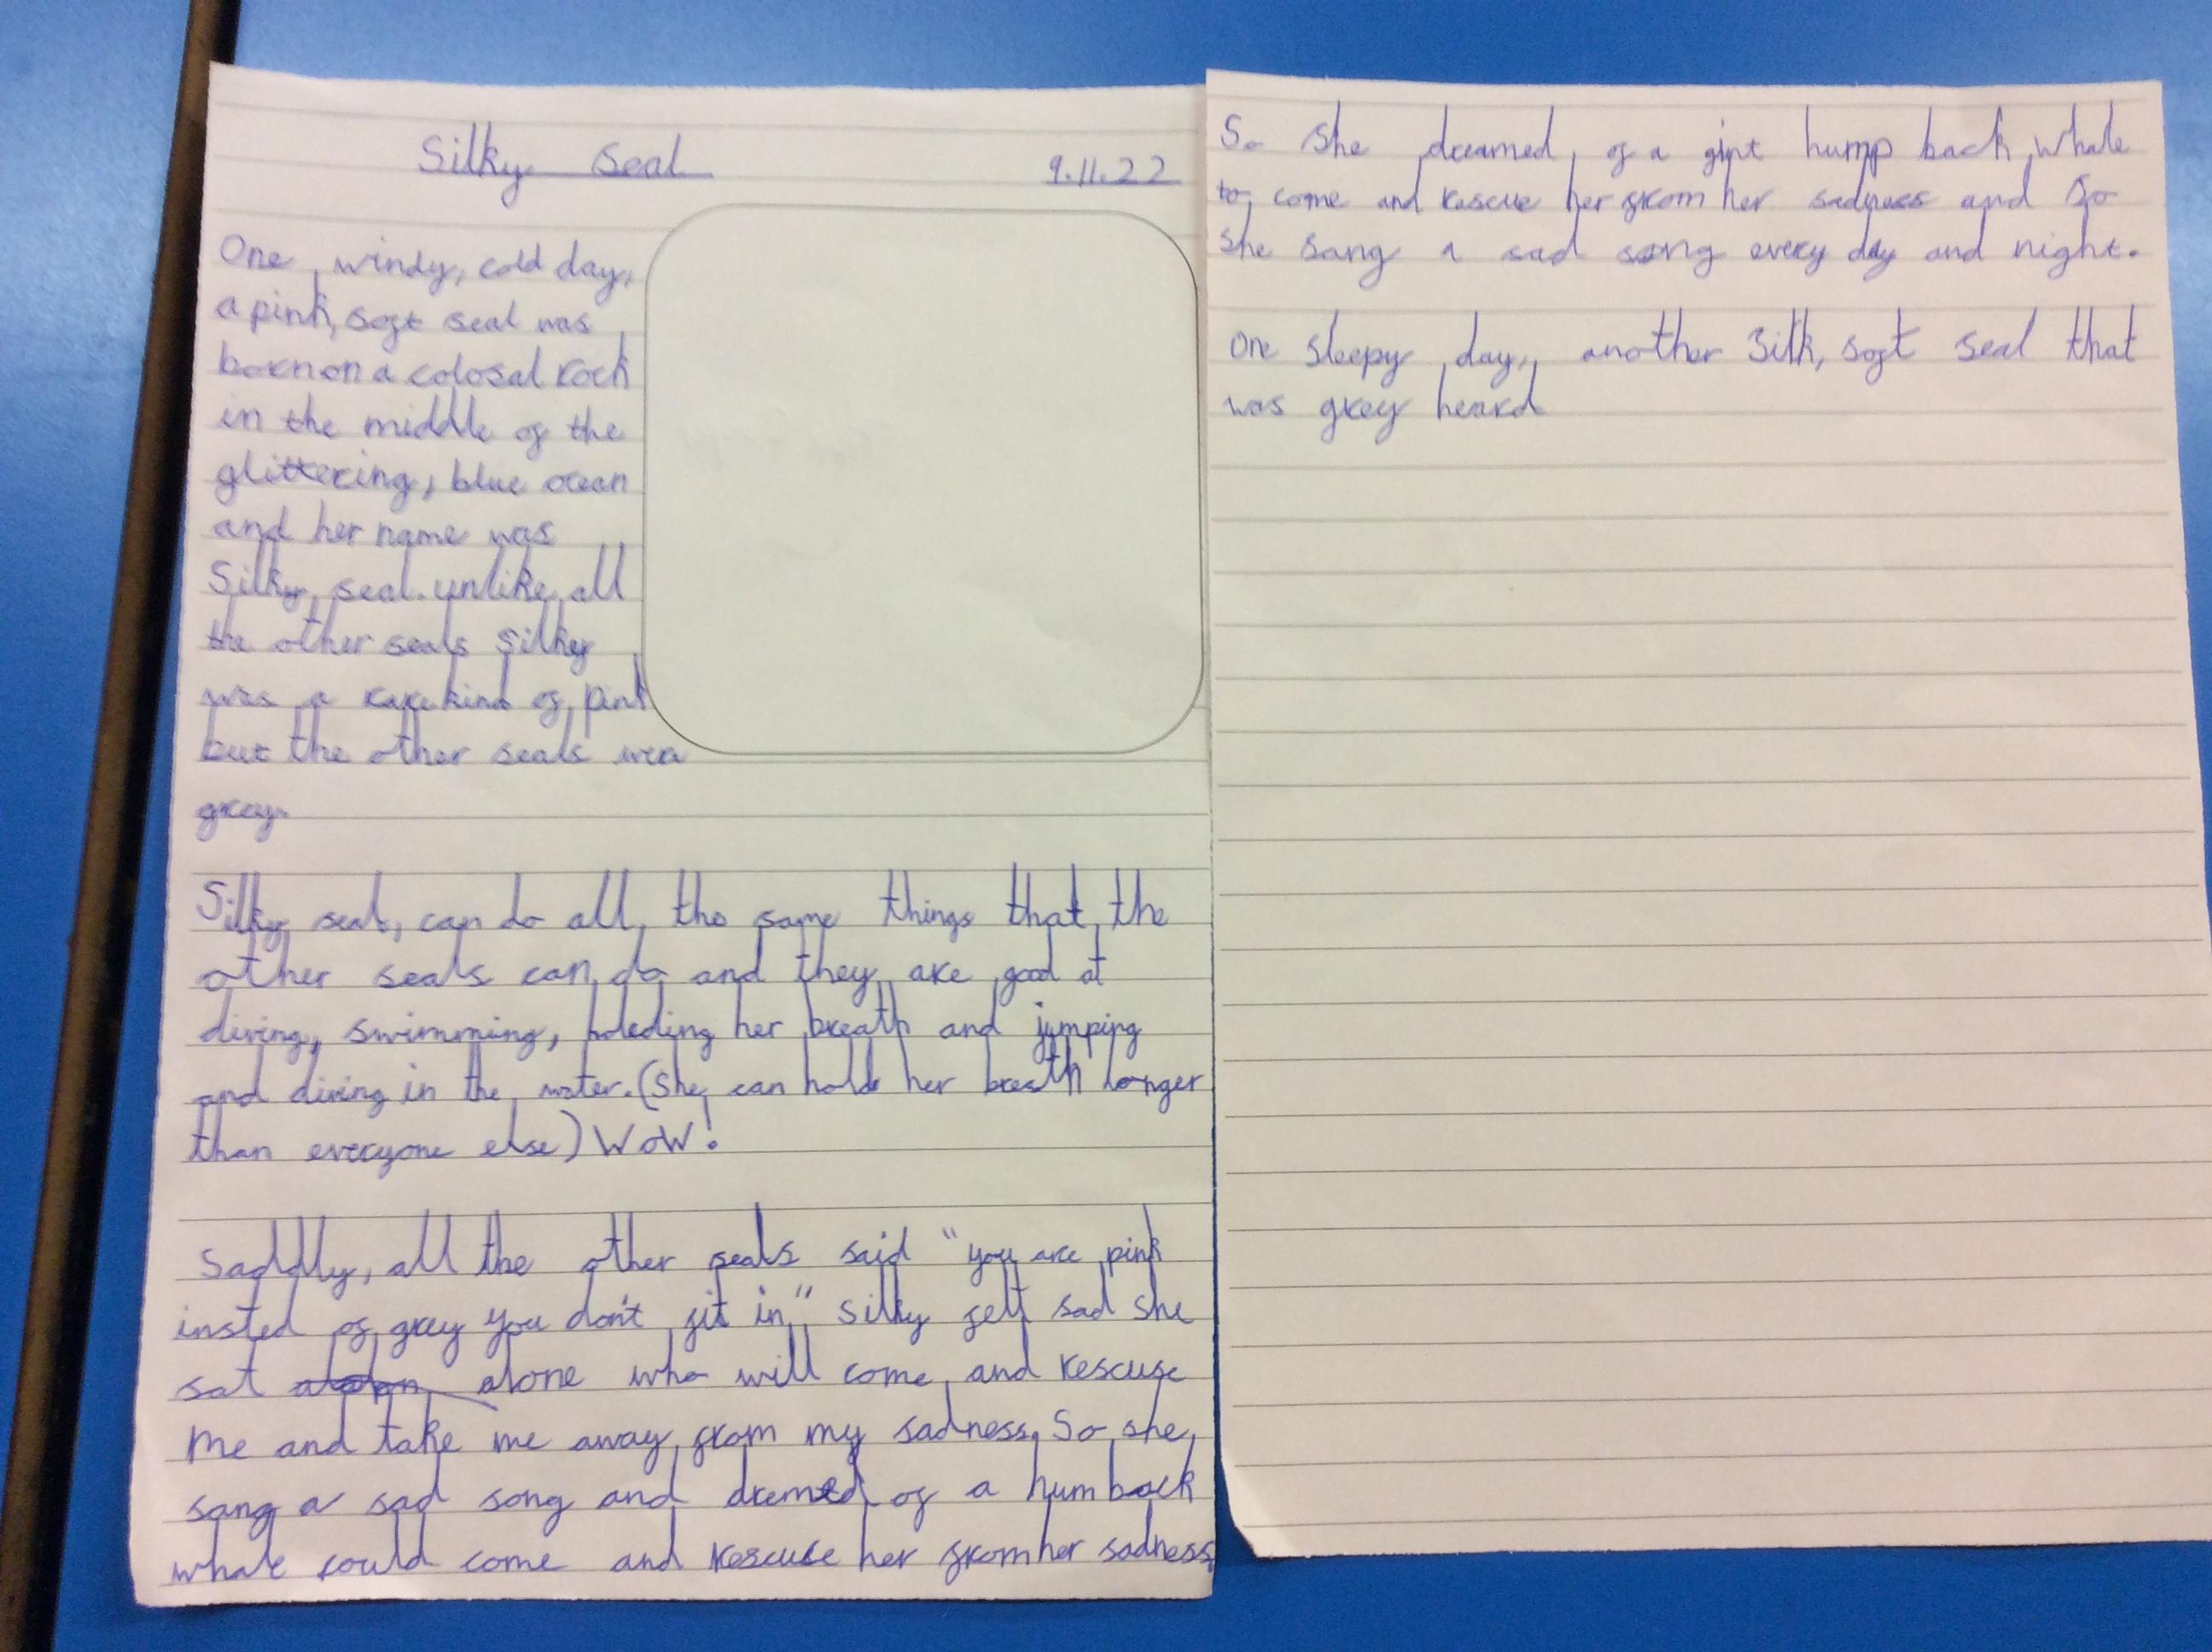 Silky Seal
9.11.22
One windy, cold day,
a pink, soft seal was
born on a colosal rock
in the middle of the
glittering, blue ocean
and her name was
Silky seal. unlike all
the other seals Silkey
was a rare kind of pink
but the other seals were
grey.
Silky seal, can do all the same things that the
other seals can do and they are good at
diving, swimming, holeding her breath and jumping
and diving in the water. (She can hold her breath longer
than everyone else) WoW!
Saddly, all the other seals said "you are pink
insted of grey you don't fit in" Silky felt sad she
sat alone who will come and rescuse
me and take me away from my sadness. So she
sang a sad song and dremed of a hum back
whale could come and rescuse her from her sadness
So she dreamed of a gint hump back whale
to come and rescue her from her sadness and So
she sang a sad song every day and night.
One sleepy day, another Silk, soft seal that
was grey heard